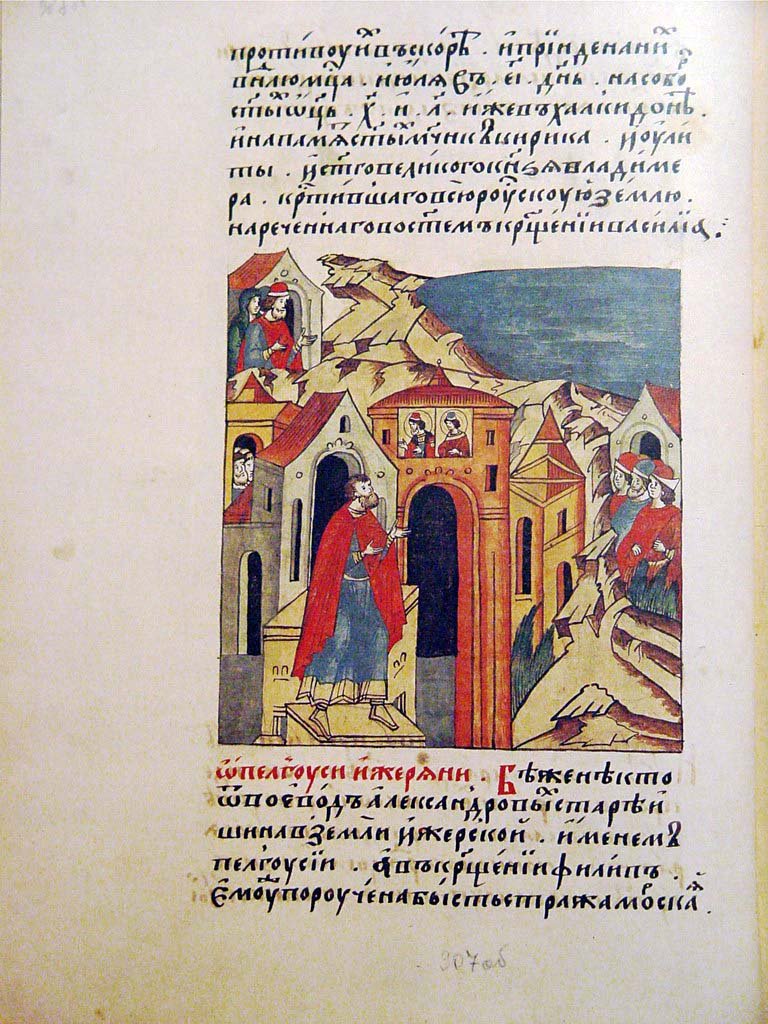 противоуи҆ въскорѣ . и҆ прїиде на нѧ
в нлю мц҃а . июлѧ въ еі . днь . на собо
сты̑ ѿц҃ь . х҃ . и . л҃ . иже въ халкидонѣ .
и на памѧ сты̑ мч҃нкꙋ кирика . и оули
ты . и ст҃го великого кн҃ѕѧ владиме
ра . крⷭ҇тившаго всю роускоую землю .
нареченнаго во ст҃емъ крщ҃енїи василїа .:
ѿ пелгоуси ижерѧни . Бѣ же нѣкто
ѿ воевод̾ъ александровы̑ старѣи
шина в земли ижерской . именемꙋ
пелгоусїи . а въ крщ҃енїи филипъ .
емоу пороучена бысть стража морскаѧ .
307 об